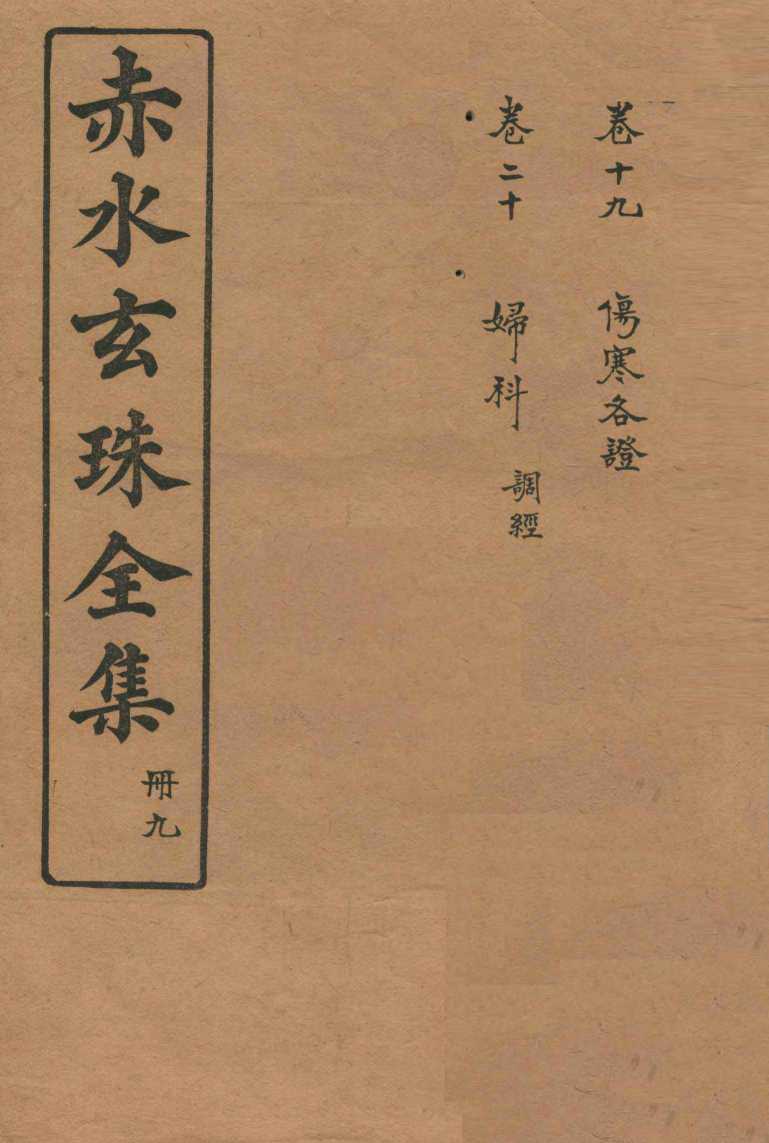 卷十九 傷寒各證
卷二十 婦科 調經
赤水玄珠全集
冊九